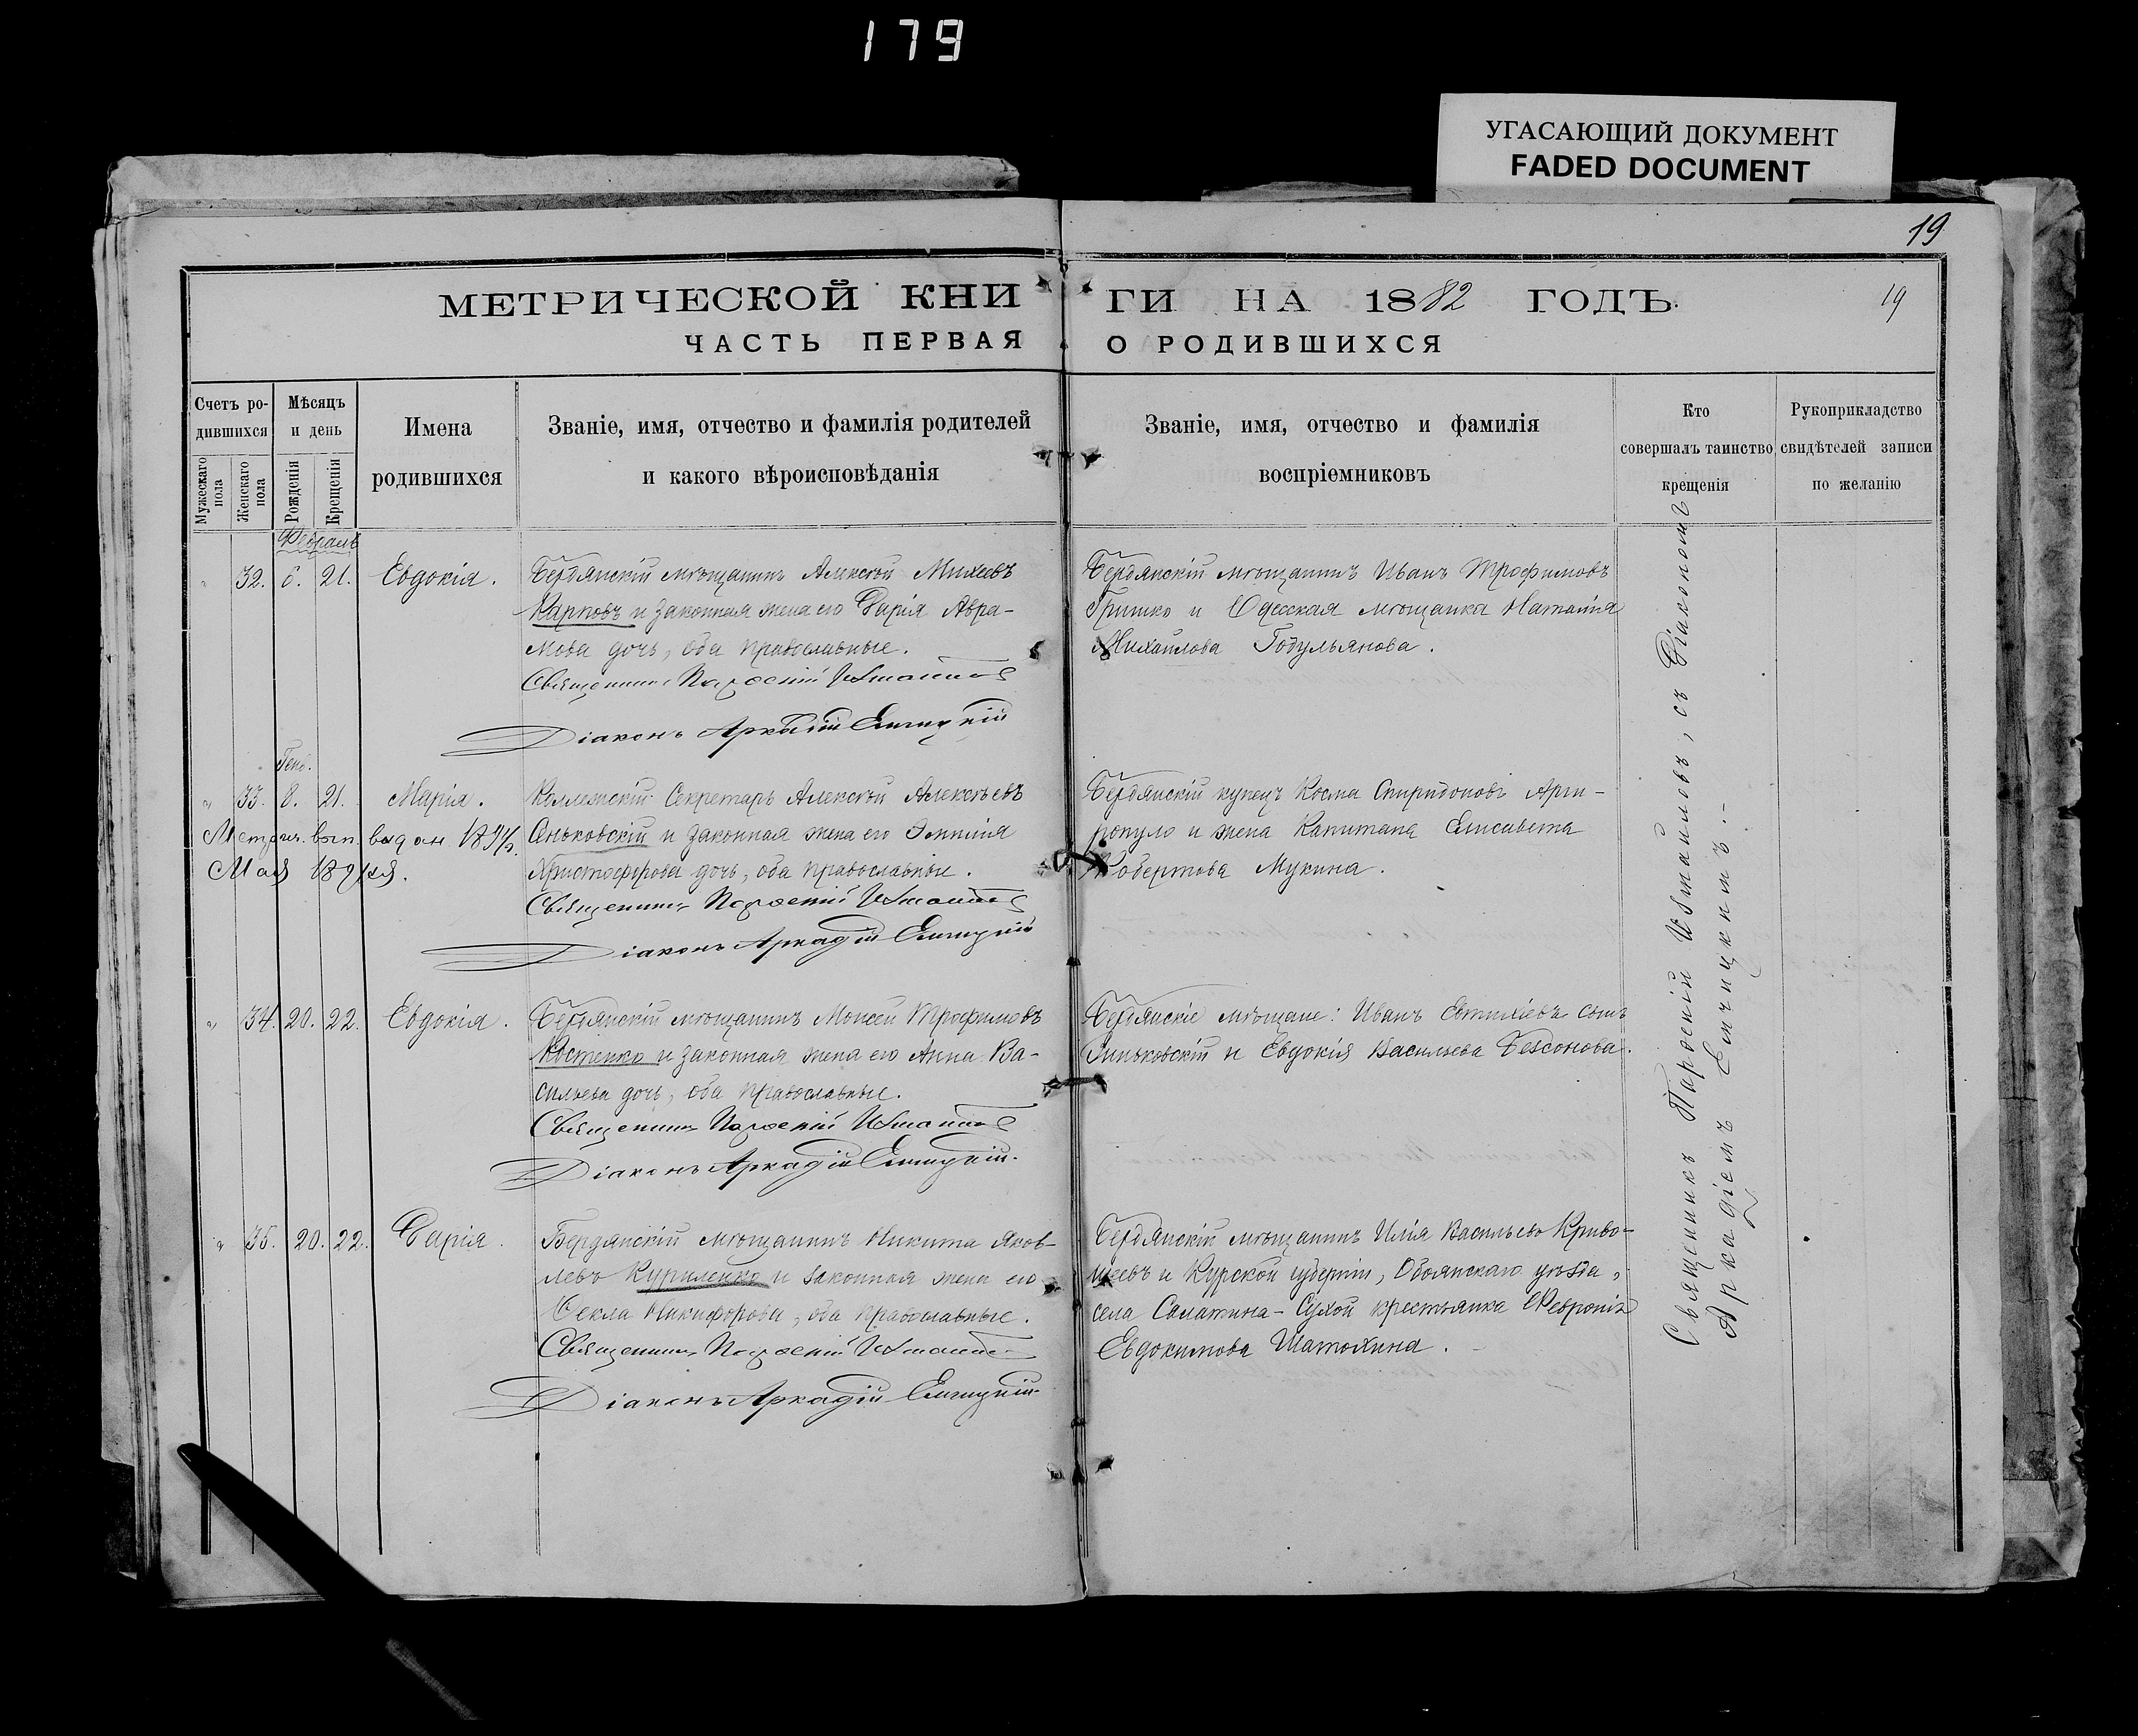 179
УГАСАЮЩИЙ ДОКУМЕНТ
FADED DOCUMENT
19
МЕТРИЧЕСКОЙ КНИГИ НА 1882 ГОДЪ.
19
ЧАСТЬ ПЕРВАЯ О РОДИВШИХСЯ
Счетъ ро-
дившихся
Мужескаго пола
Женскаго пола
Мѣсяцъ
и день
Рожденія
Крещенія
Имена
родившихся
Званіе, имя, отчество и фамилія родителей
и какого вѣроисповѣданія
Званіе, имя, отчество и фамилія
воспріемниковъ
Кто
совершалъ таинство
крещенія
Рукоприкладство
свидѣтелей записи
по желанію
Февраль
„ 32. 6. 21. Евдокія.
Бердянскій мѣщанинъ Алексѣй Михеевъ
Карповъ и законная жена его Дарія Авра-
мова дочь, оба православные.
Священникъ Паросскій Измаиловъ
Діаконъ Аркадій Емчицкій
Бердянскій мѣщанинъ Иванъ Трофимовъ
Гришко и Одесская мѣщанка Наталія
Михайлова Годульянова.
Генв.
„ 33. 8. 21. Марія.
Метрич. вып. выдан.
Мая
Коллежскій Секретарь Алексѣй Алексѣевъ
Аньковскій и законная жена его Эмилія
Христофорова дочь, оба православные.
Священникъ Паросскій Измаиловъ
Діаконъ Аркадій Емчицкій
Бердянскій купецъ Косма Спиридоновъ Арги-
ропуло и жена Капитана Елисавета
Робертова Мукина.
„ 34. 20. 22. Евдокія.
Бердянскій мѣщанинъ Моисей Трофимовъ
Костенко и законная жена его Анна Ва-
сильева дочь, оба православные.
Священникъ Паросскій Измаиловъ
Діаконъ Аркадій Емчицкій.
Бердянскіе мѣщане: Иванъ Евтихіевъ сынъ
Зиньковскій и Евдокія Васильева Безсонова.
„ 35. 20. 22. Дарія.
Бердянскій мѣщанинъ Никита Яков-
левъ Куриленко и законная жена его
Ѳекла Никифорова, оба православные.
Священникъ Паросскій Измаиловъ
Діаконъ Аркадій Емчицкій
Бердянскій мѣщанинъ Илія Васильевъ Криво-
шеевъ и Курской губерніи, Обоянскаго уѣзда,
села Солотина-Сухой крестьянка Февронія
Евдокимова Шатохина.
Священникъ Паросскій Измаиловъ, съ Діакономъ
Аркадіемъ Емчицкимъ.